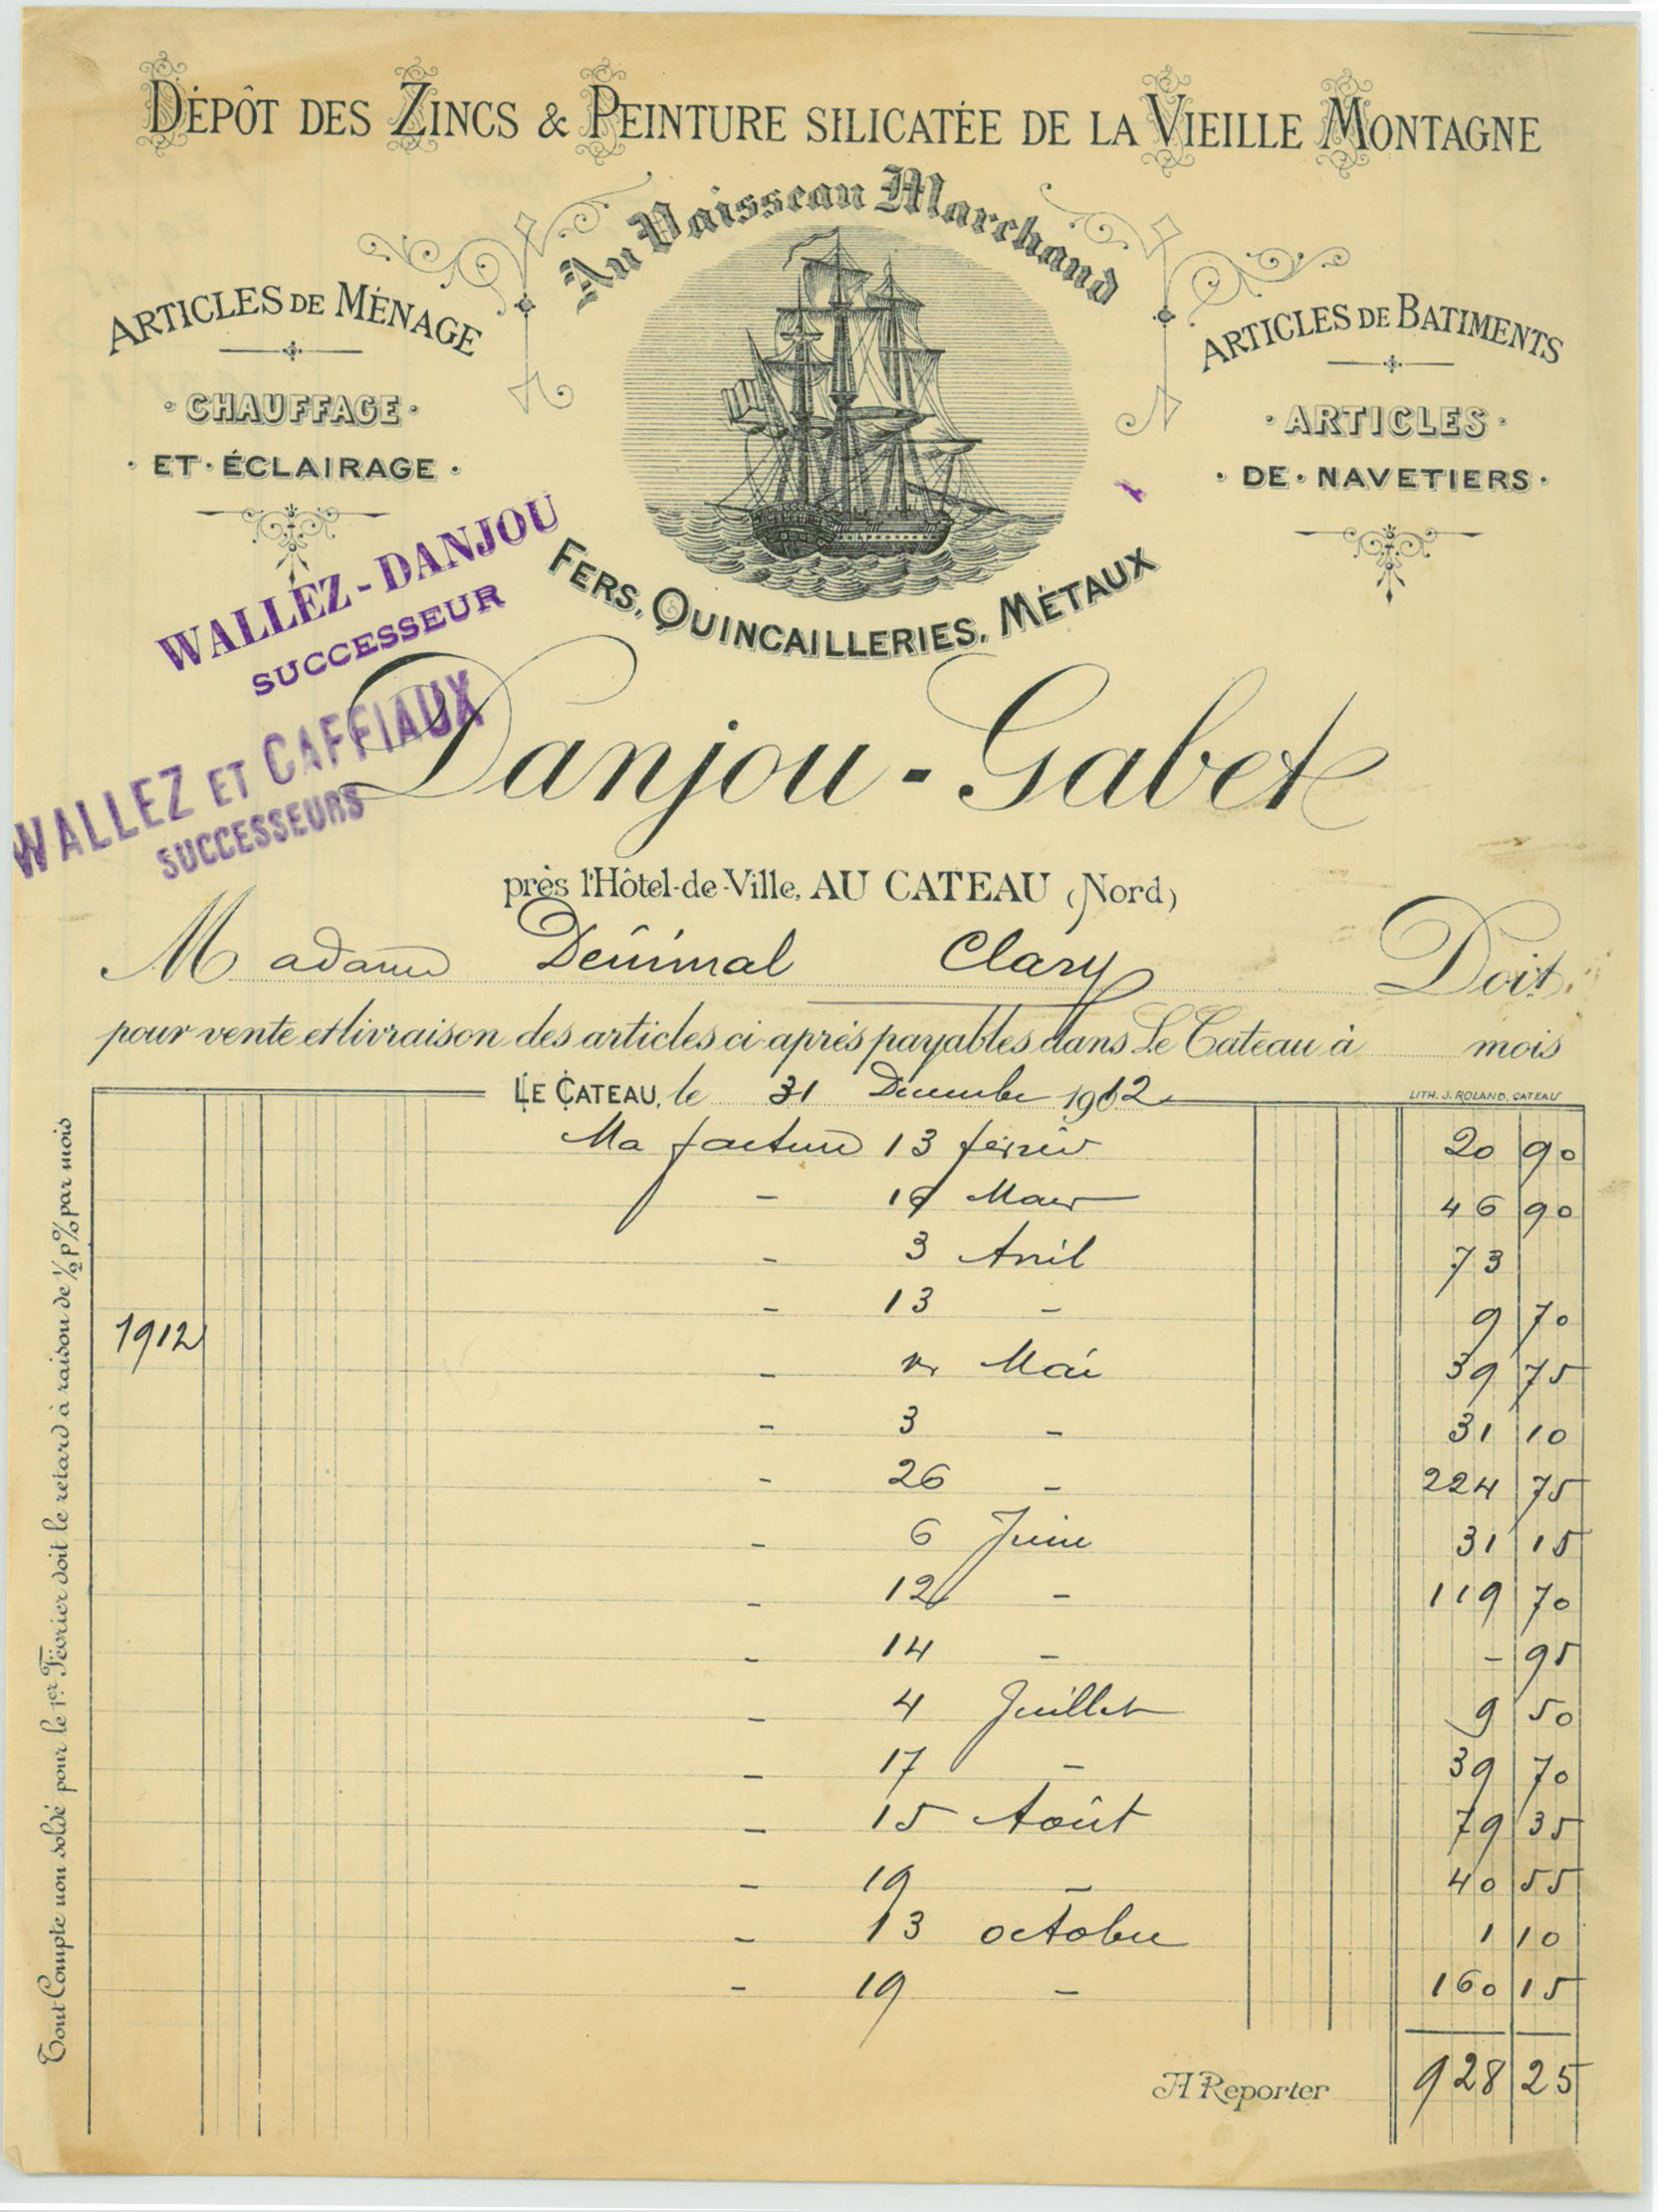 DÉPÔT DES ZINCS & PEINTURE SILICATÉE DE LA VIEILLE MONTAGNE
Au Vaisseau Marchand
ARTICLES DE MÉNAGE
CHAUFFAGE
ET · ÉCLAIRAGE
ARTICLES DE BATIMENTS
ARTICLES
DE · NAVETIERS
FERS, QUINCAILLERIES, MÉTAUX
WALLEZ - DANJOU
SUCCESSEUR
WALLEZ ET CAFFIAUX
SUCCESSEURS
Danjou - Gabet
près l'Hôtel-de-Ville, AU CATEAU (Nord)
Madame Denimal Clary Doit
pour vente et livraison des articles ci-après payables dans Le Cateau à mois
LE CATEAU, le 31 Décembre 1912
LITH. J. ROLAND, CATEAU
Ma facture 13 février 20 90
- 19 Mars 46 90
- 3 Avril 73
- 13 - 9 70
1912
- Mai 39 75
- 3 - 31 10
- 26 - 224 75
- 6 Juin 31 15
- 12 - 119 70
- 14 - - 95
- 4 Juillet 9 50
- 17 - 39 70
- 15 Août 79 35
- 19 - 40 55
- 13 octobre 1 10
- 19 - 160 15
A Reporter 928 25
Tout Compte non soldé pour le 1er Février doit le retard à raison de 1/2 p% par mois